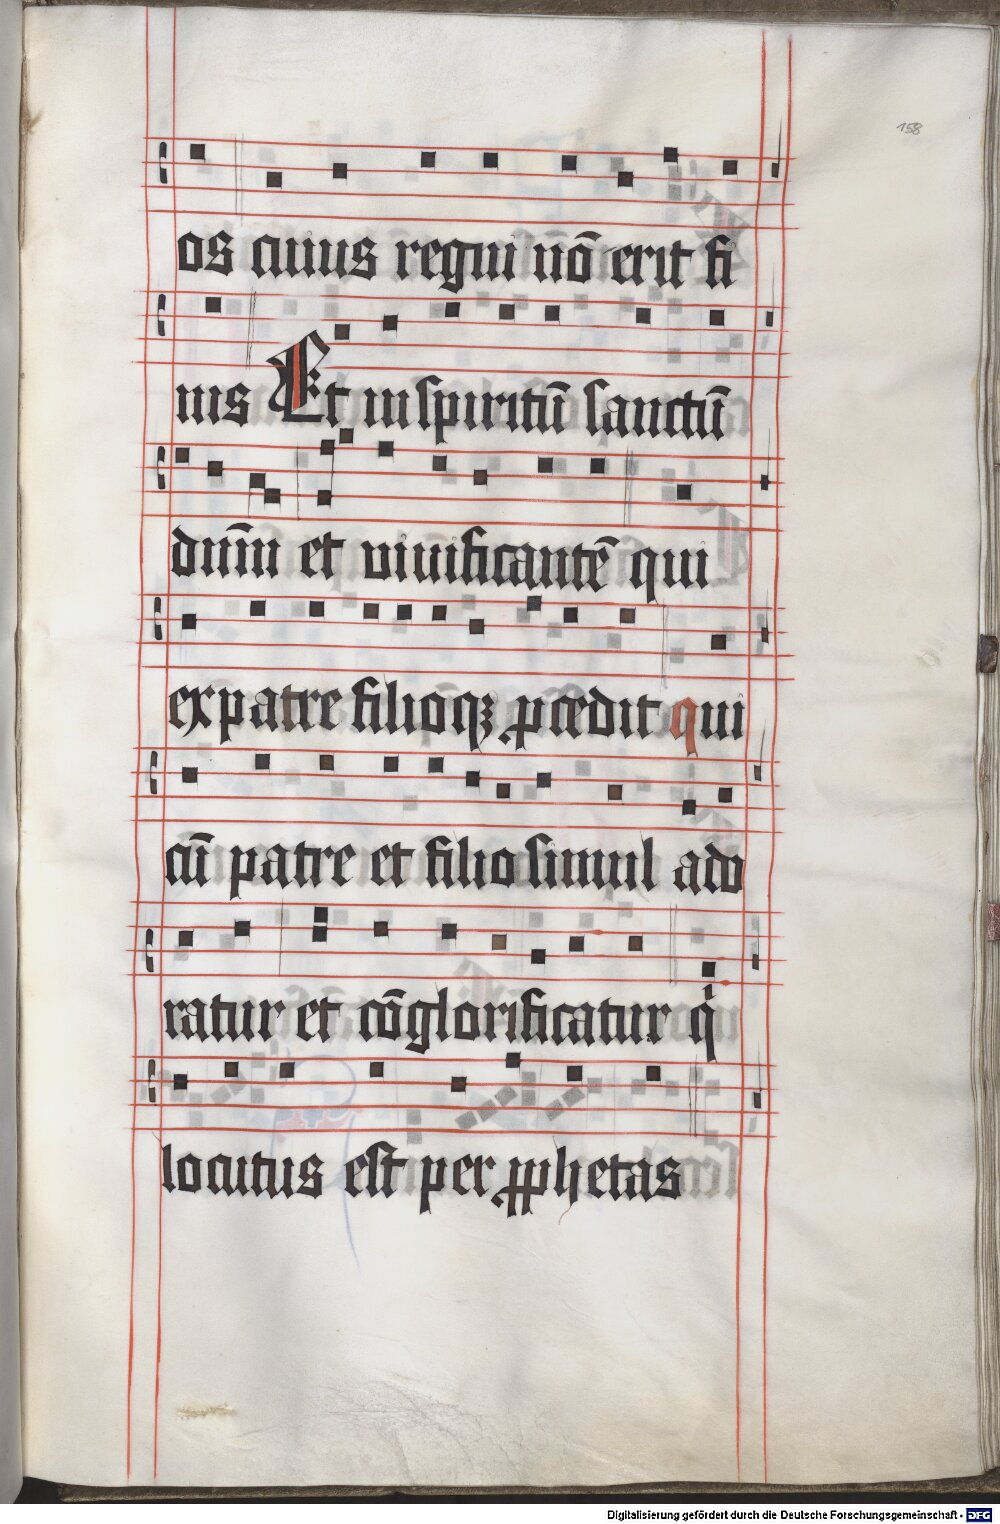 158
os cuius regni nō erit fi
nis Et in spiritū sanctū
dn̄m et viuificantē qui
ex patre filioq̄ꝫ ꝓcedit qui
cū patre et filio simul ado
ratur et cōglorificatur qͥ
locutus est per ꝓphetas
Digitalisierung gefördert durch die Deutsche Forschungsgemeinschaft - DFG